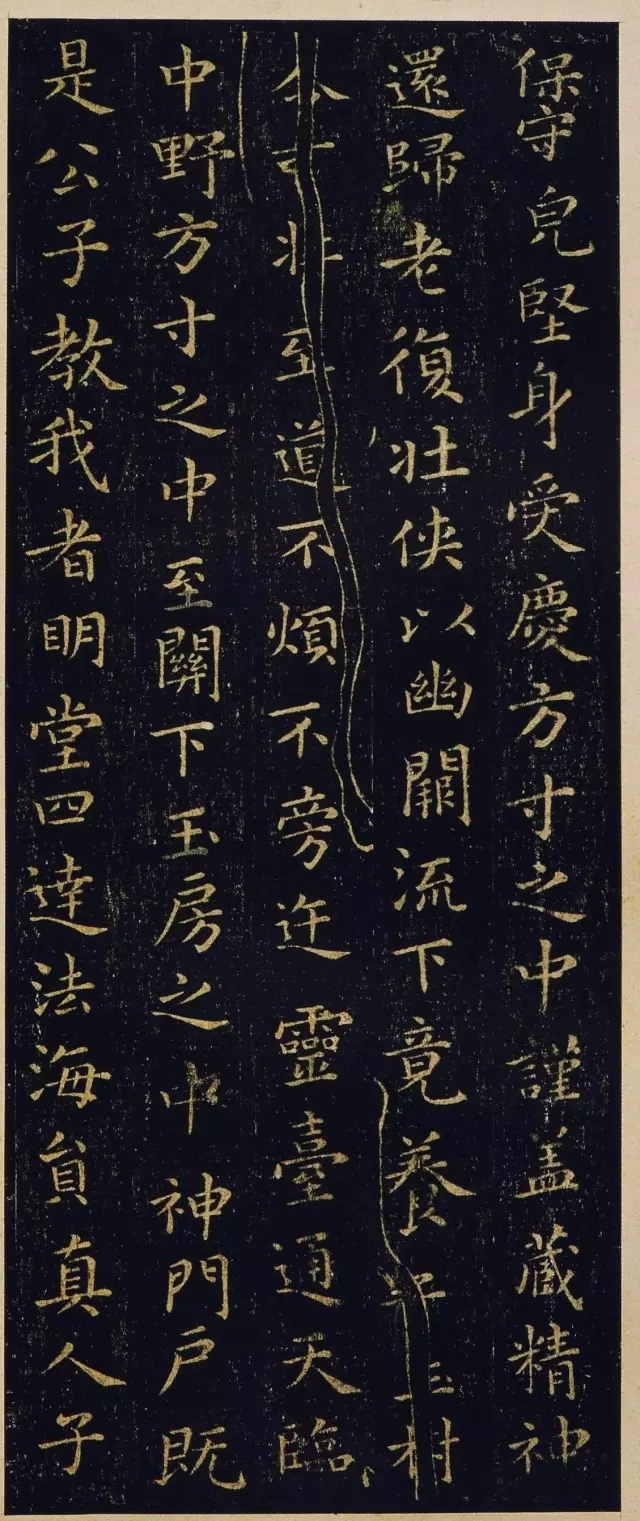 保守皃堅身受慶方寸之中謹盖藏精神
還歸老復壯俠以幽闕流下竟養玉
壯至道不煩不旁迕靈臺通天臨
中野方寸之中至關下玉房之中神門戶既
是公子教我者眀堂四達法海員真人子